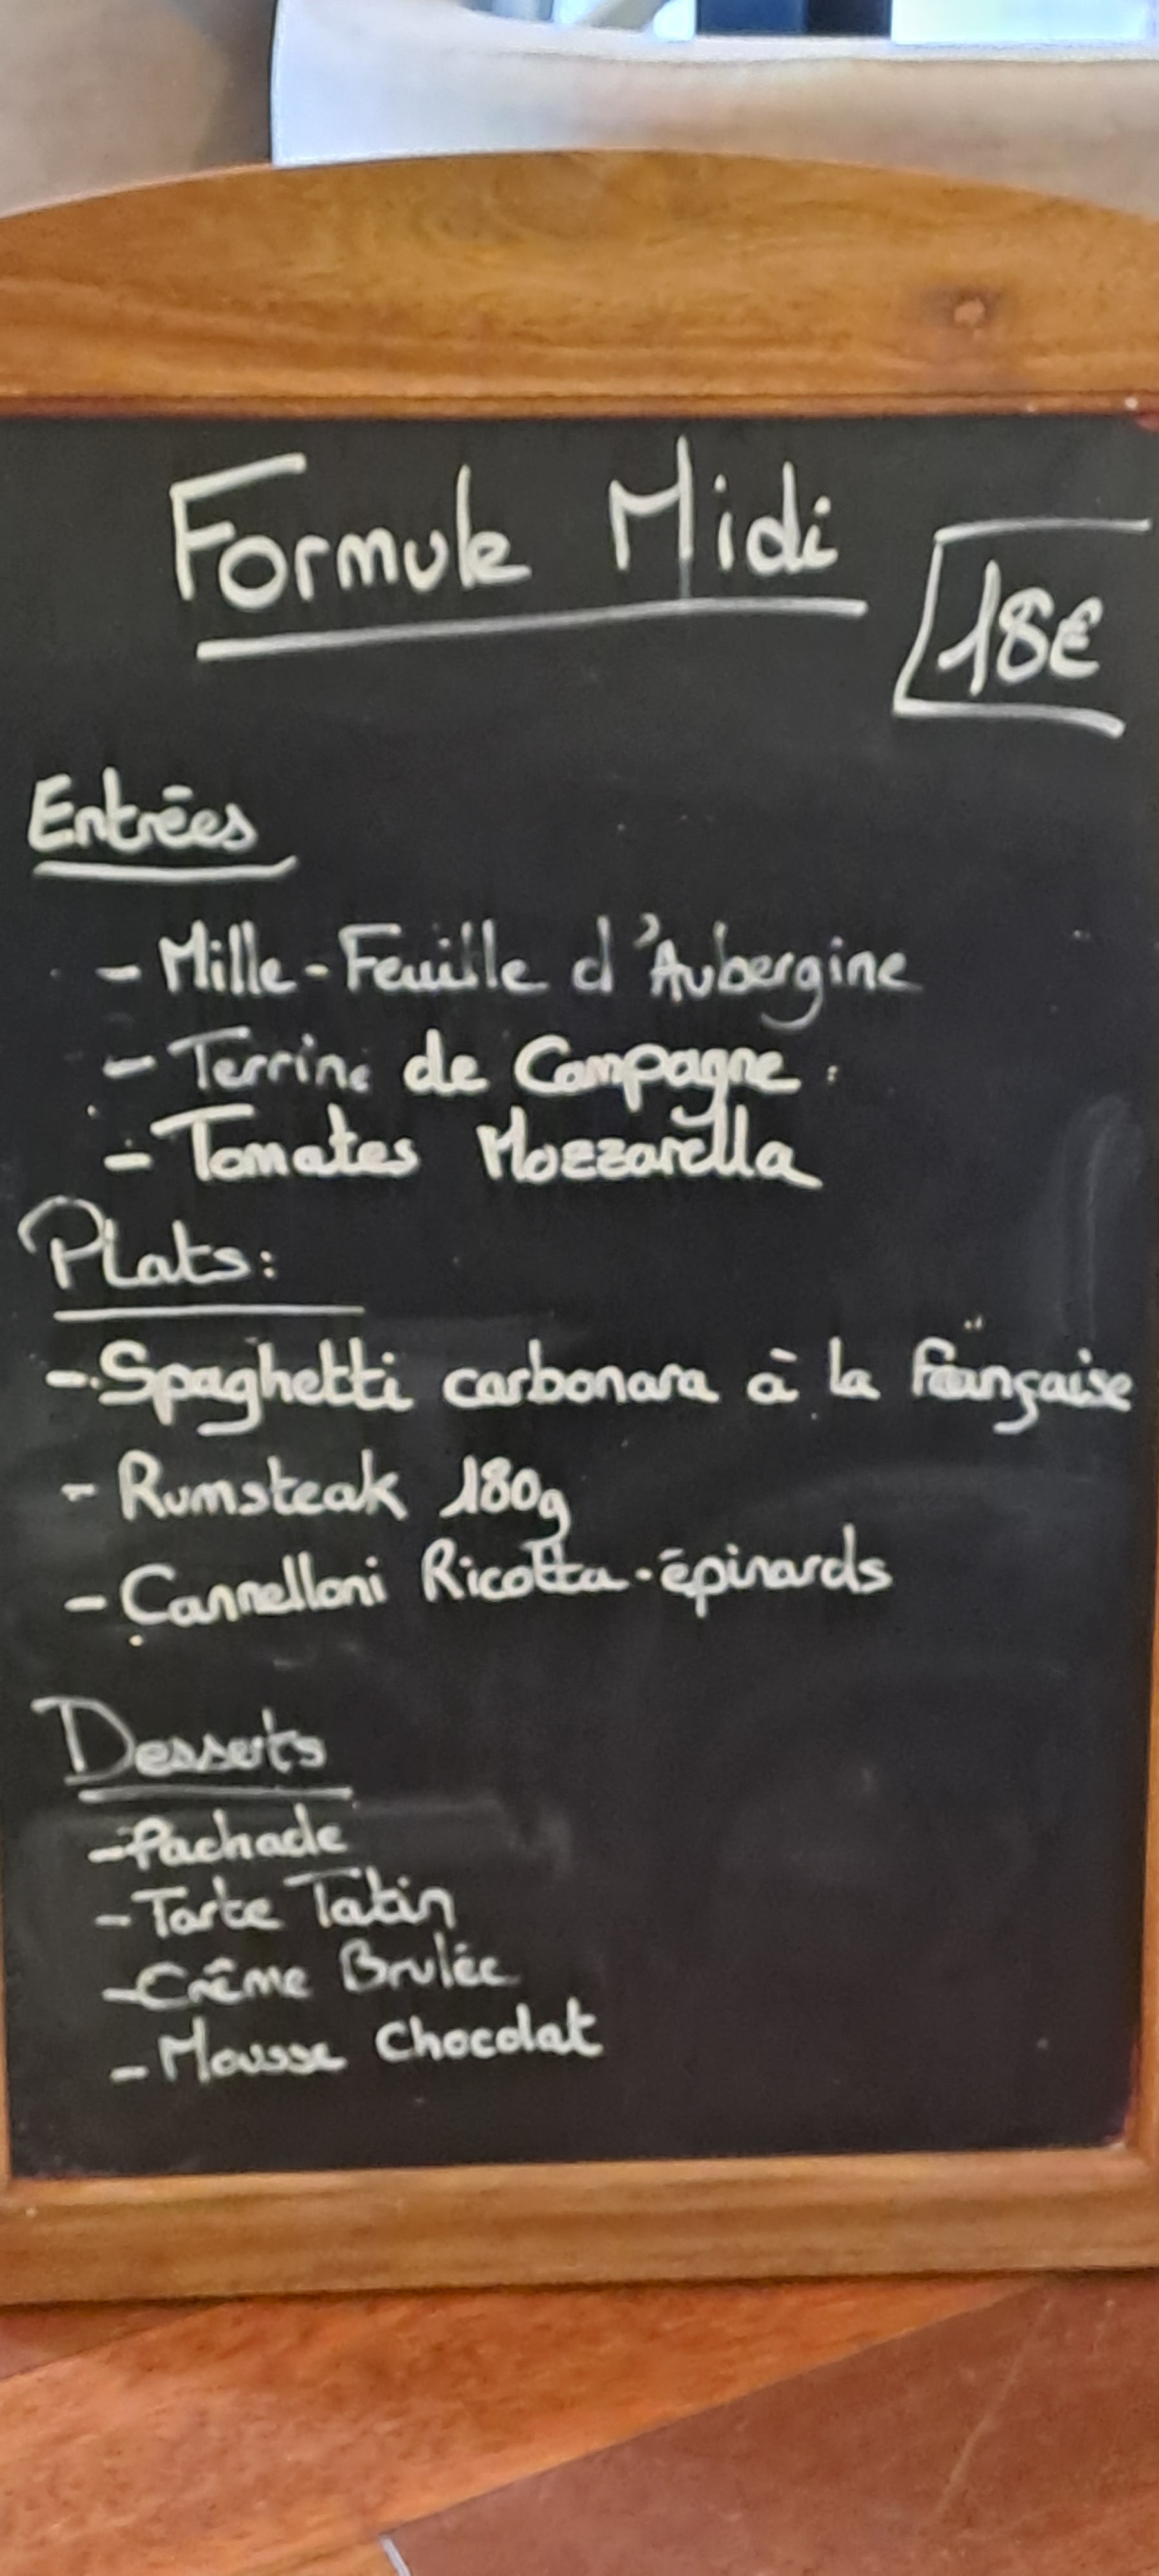 Formule Midi
18€
Entrées
- Mille-Feuille d'Aubergine
- Terrine de Campagne
- Tomates Mozzarella
Plats:
- Spaghetti carbonara à la Française
- Rumsteak 180g
- Cannelloni Ricotta-épinards
Desserts
- Pachade
- Tarte Tatin
- Crême Brulée
- Mousse Chocolat